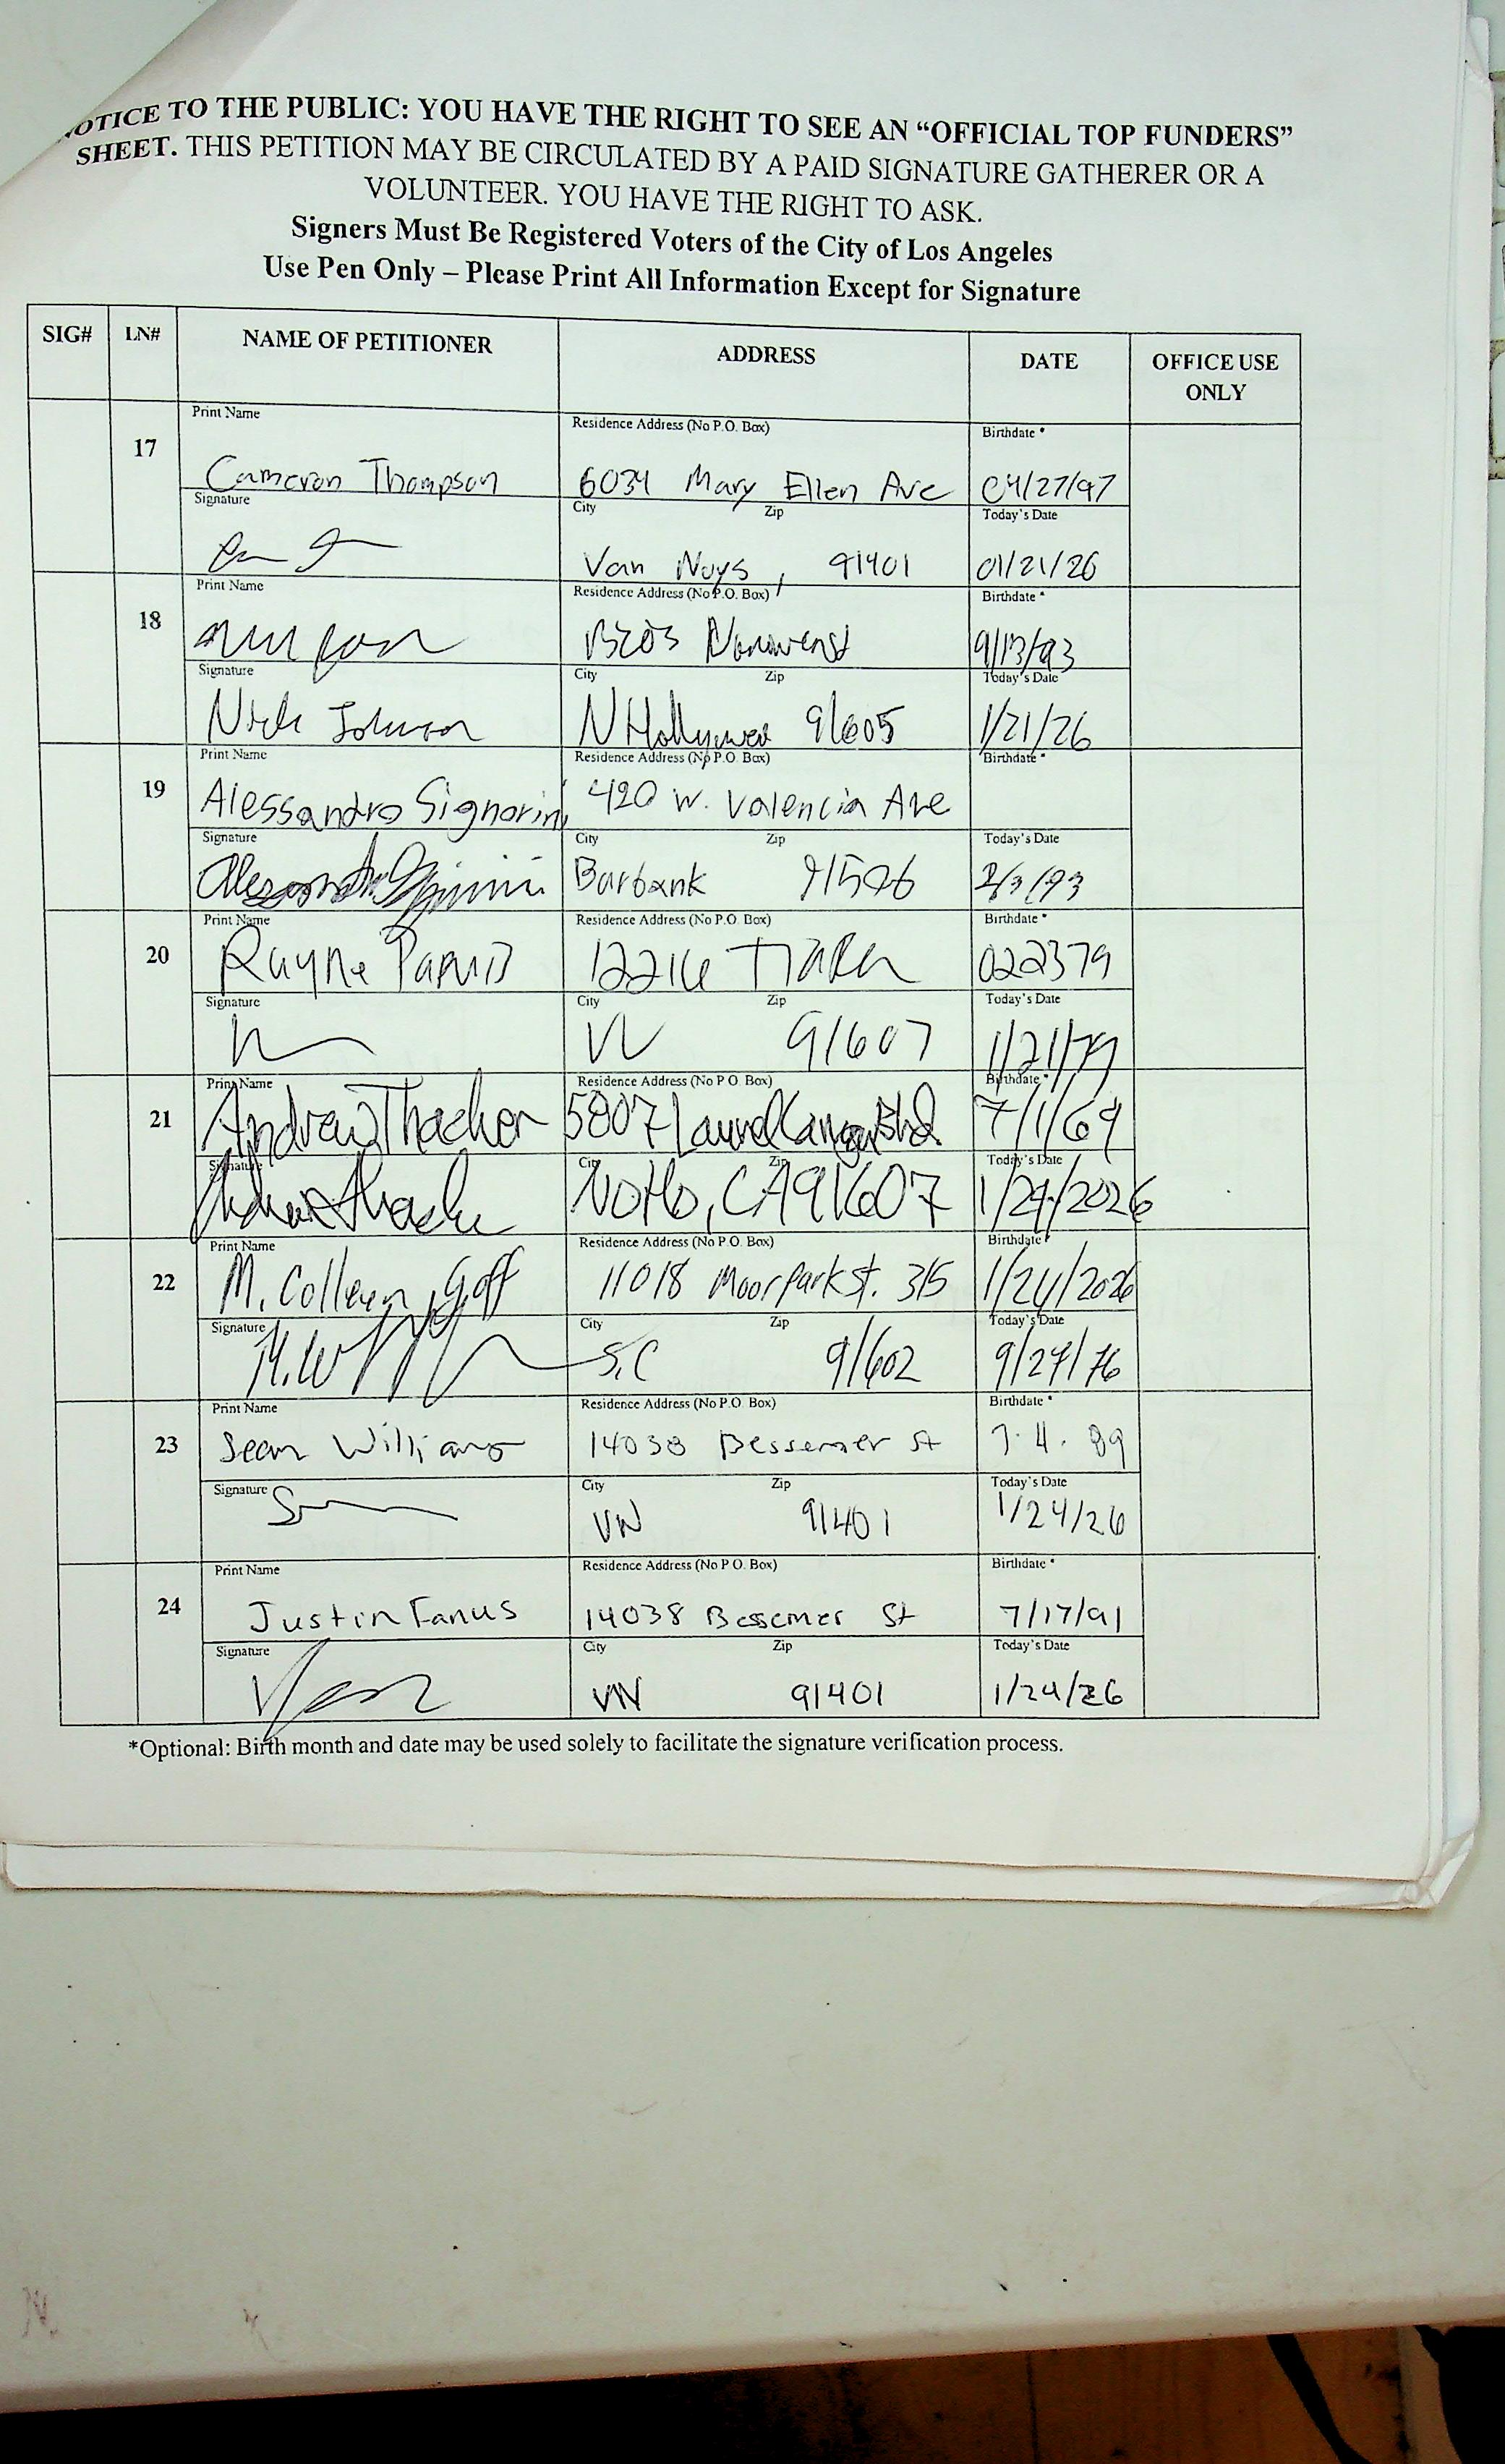 OTICE TO THE PUBLIC: YOU HAVE THE RIGHT TO SEE AN “OFFICIAL TOP FUNDERS”
SHEET. THIS PETITION MAY BE CIRCULATED BY A PAID SIGNATURE GATHERER OR A
VOLUNTEER. YOU HAVE THE RIGHT TO ASK.
Signers Must Be Registered Voters of the City of Los Angeles
Use Pen Only – Please Print All Information Except for Signature
SIG# LN# NAME OF PETITIONER ADDRESS DATE OFFICE USE
ONLY
Print Name Residence Address (No P.O. Box) Birthdate *
17 Cameron Thompson 6034 Mary Ellen Ave 04/27/97
Signature City Zip Today's Date
Van Nuys, 91401 01/21/26
Print Name Residence Address (No P.O. Box) Birthdate *
18 9/13/93
Signature City Zip Today's Date
Nick Johnson N Hollywood 91605 1/21/26
Print Name Residence Address (No P.O. Box) Birthdate *
19 Alessandro Signorini 420 W. Valencia Ave
Signature City Zip Today's Date
Burbank 91506 2/3/93
Print Name Residence Address (No P.O. Box) Birthdate *
20 Rayne 12216 Tiara 022379
Signature City Zip Today's Date
91607 1/21/79
Print Name Residence Address (No P.O. Box) Birthdate *
21 Andrew Thacker 5807 Laurel Canyon Blvd. 7/1/69
Signature City Zip Today's Date
Andrew Thacker NoHo, CA 91607 1/24/2026
Print Name Residence Address (No P.O. Box) Birthdate *
22 M. Colleen Goff 11018 Moorpark St. 315 1/24/2026
Signature City Zip Today's Date
S.C 91602 9/27/76
Print Name Residence Address (No P.O. Box) Birthdate *
23 Sean Williams 14038 Bessemer St 7.4.89
Signature City Zip Today's Date
VN 91401 1/24/26
Print Name Residence Address (No P.O. Box) Birthdate *
24 Justin Fanus 14038 Bessemer St 7/17/91
Signature City Zip Today's Date
VN 91401 1/24/26
*Optional: Birth month and date may be used solely to facilitate the signature verification process.